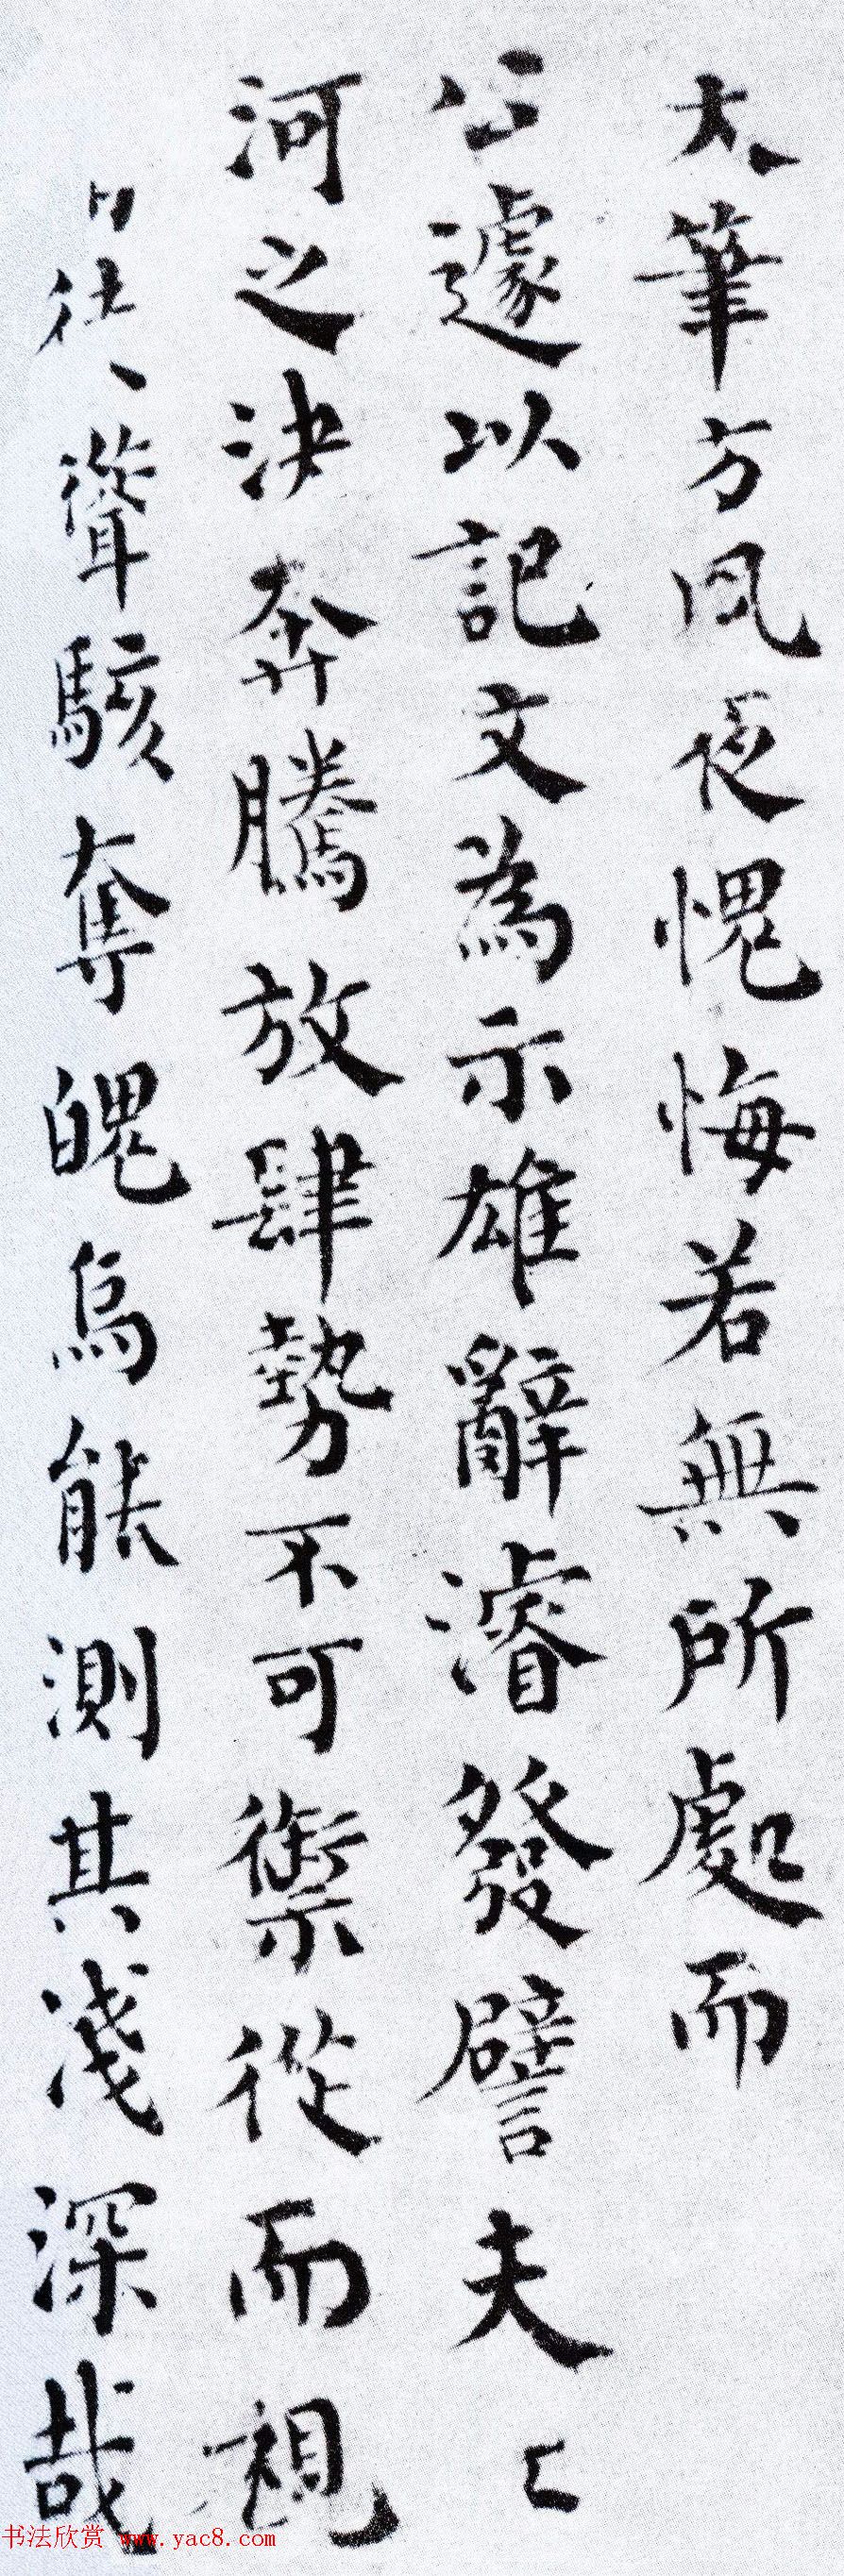 大筆方夙夜愧悔若無所處而
公遽以記文為示雄辭濬發譬夫
河之決奔騰放肆勢不可禦從而視
聳駭奪魄烏能測其淺深哉
书法欣赏 www.yac8.com